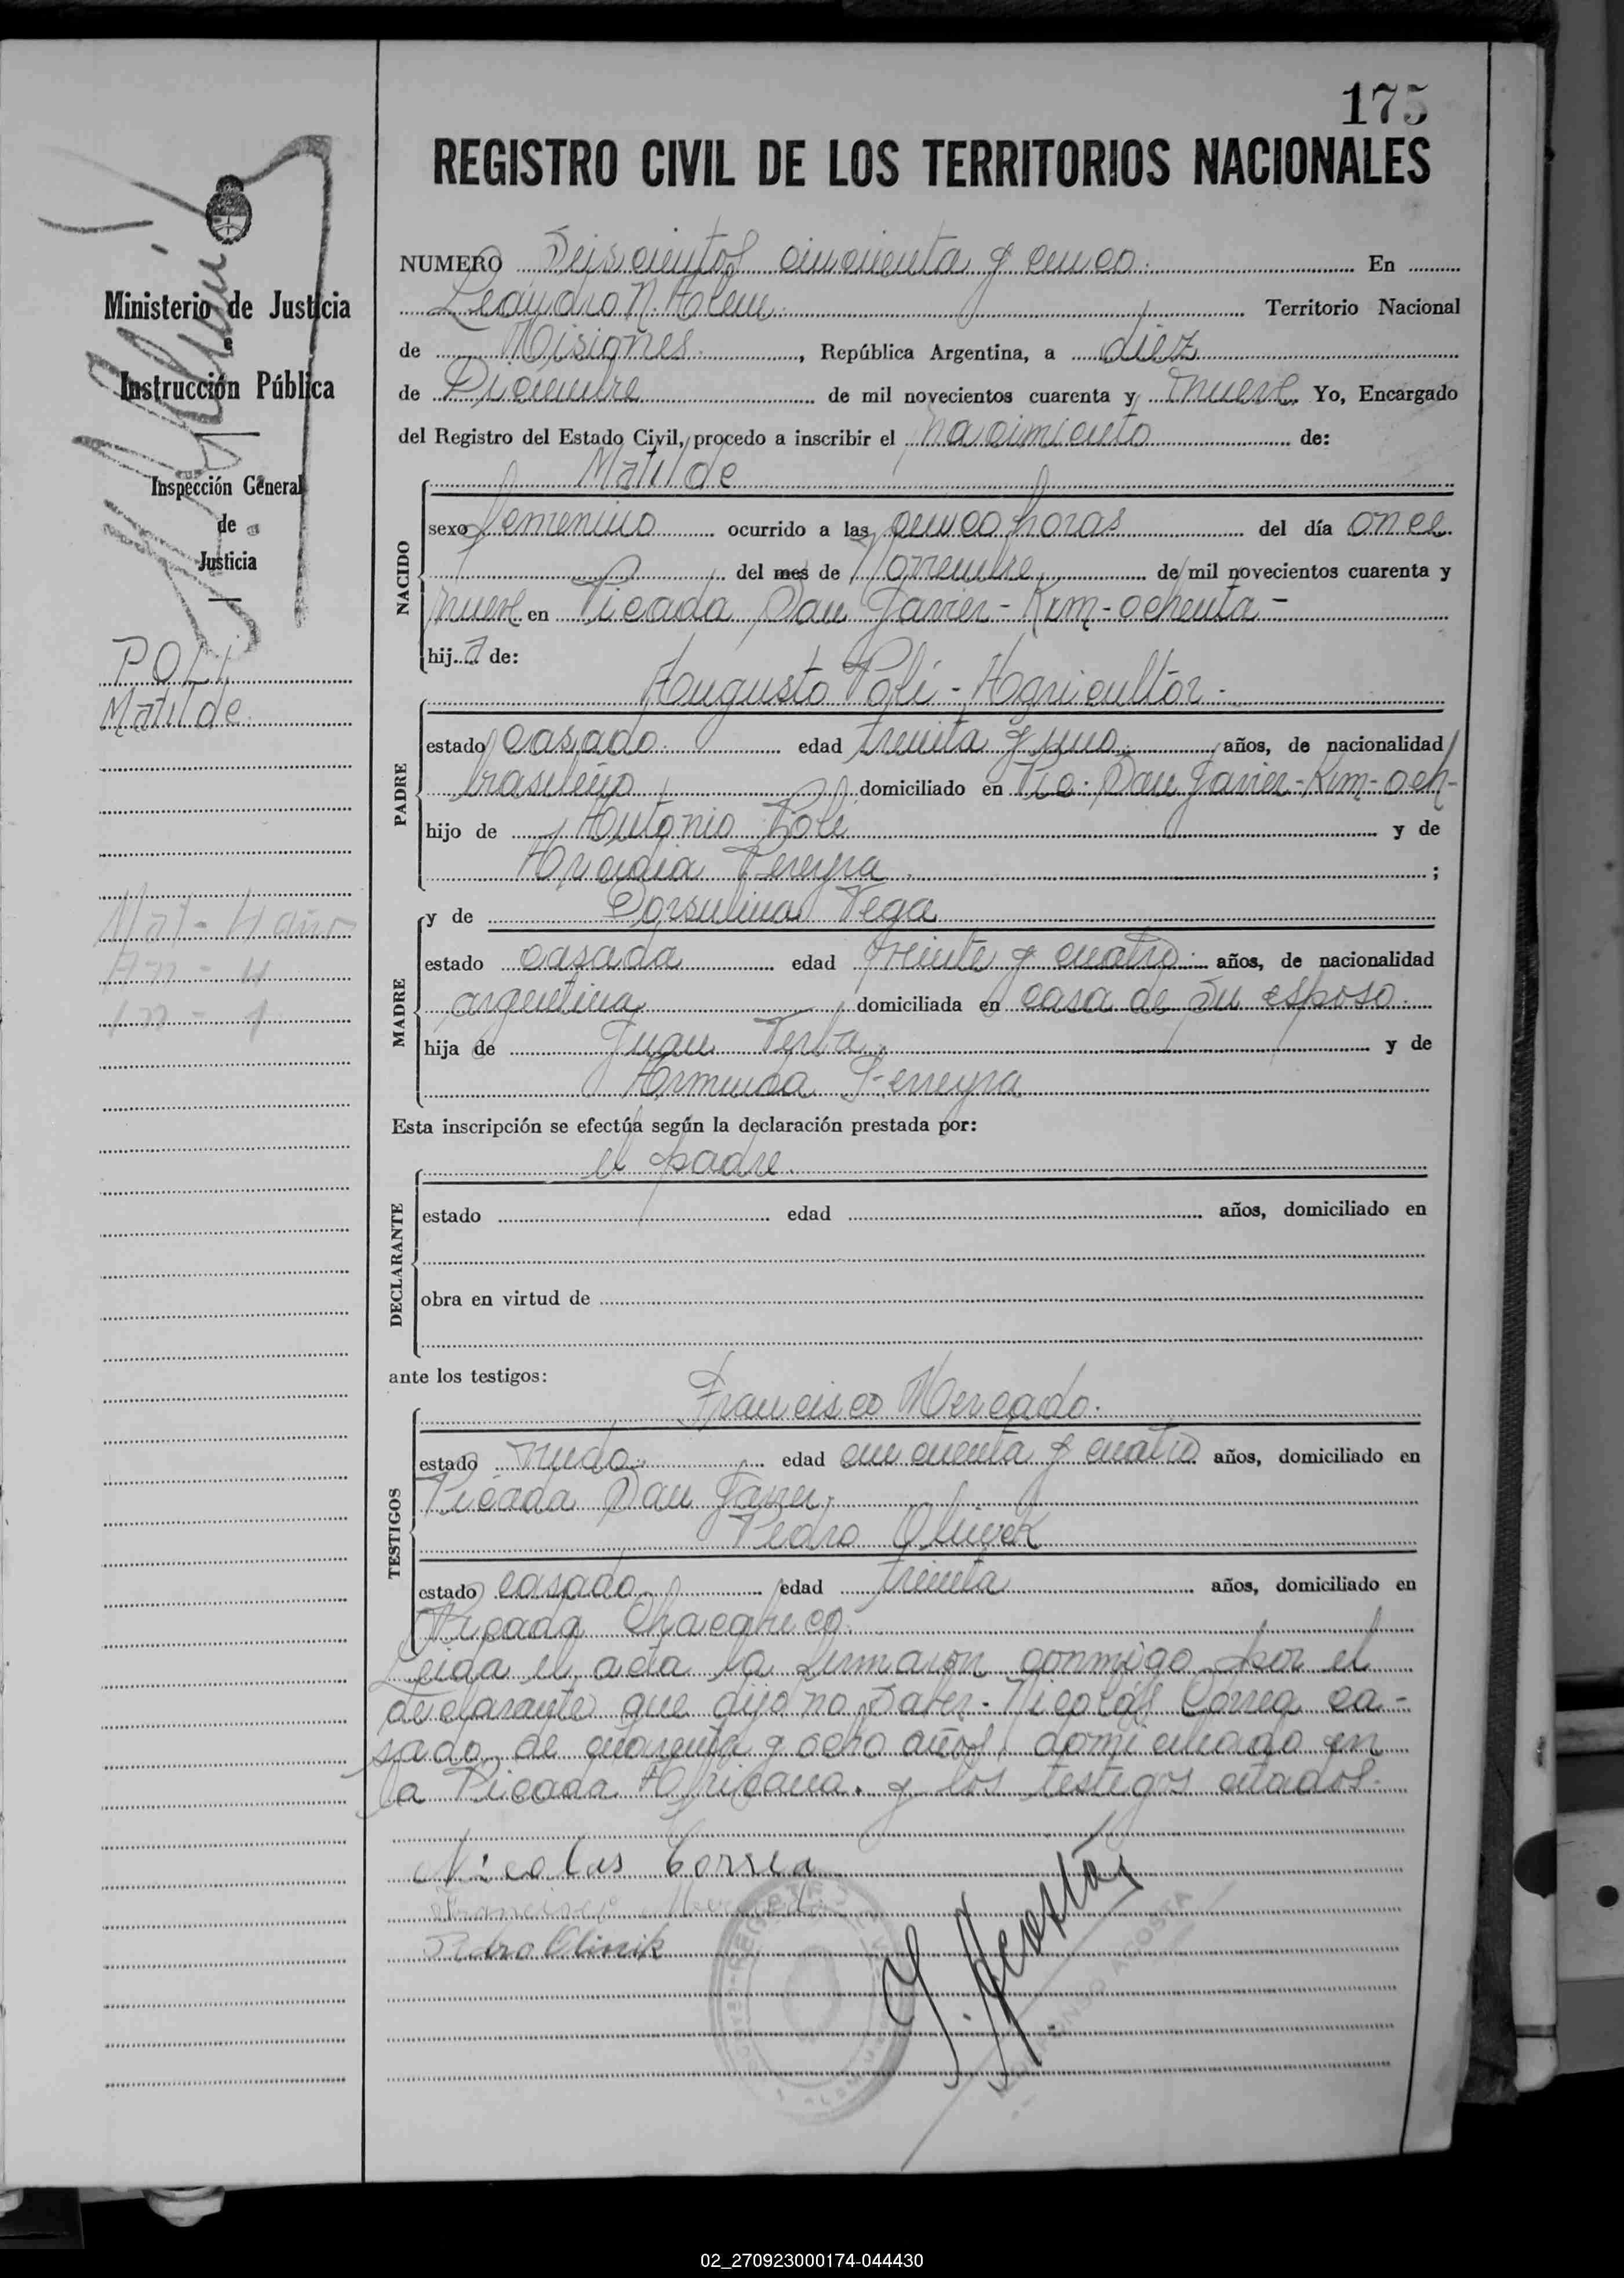 175
REGISTRO CIVIL DE LOS TERRITORIOS NACIONALES
Ministerio de Justicia
e
Instrucción Pública
Inspección General
de
Justicia
POLI
Matilde
Mat - 4 años
NUMERO Seiscientos cincuenta y cinco. En
Leandro N. Alem. Territorio Nacional
de Misiones, República Argentina, a diez
de Diciembre de mil novecientos cuarenta y nueve. Yo, Encargado
del Registro del Estado Civil, procedo a inscribir el nacimiento de:
Matilde
NACIDO
sexo femenino ocurrido a las cinco horas del día once
del mes de Noviembre de mil novecientos cuarenta y
nueve en Picada San Javier - Krm - ochenta -
hija de:
Augusto Poli - Agricultor.
PADRE
estado casado. edad treinta y uno. años, de nacionalidad
brasileño domiciliado en Pic. San Javier - Krm - och-
hijo de Antonio Poli y de
Arcidia Pereyra. ;
MADRE
y de Dorsulina Vega
estado casada edad treinte y cuatro. años, de nacionalidad
argentina domiciliada en casa de su esposo.
hija de Juan y de
Arminda Ferreyra
Esta inscripción se efectúa según la declaración prestada por:
el padre.
DECLARANTE
estado edad años, domiciliado en
obra en virtud de
ante los testigos:
Francisco Mercado.
TESTIGOS
estado viudo. edad cincuenta y cuatro años, domiciliado en
Picada San Javier.
Pedro Olivek
estado casado. edad treinta años, domiciliado en
Picada Chacabuco.
Leida el acta la firmaron conmigo por el
declarante que dijo no saber - Nicolás Correa ca-
sado, de cuarenta y ocho años, domiciliado en
la Picada Africana. y los testigos citados.
Nicolas Correa
Francisco Mercado
Pedro Olinik
I. Acosta
ACOSTA
02_270923000174-044430